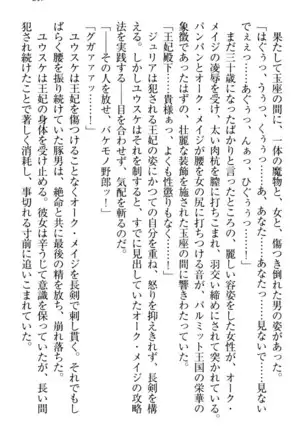 果たして玉座の間に、一体の魔物と、女と、傷つき倒れた男の姿があった。
「はぐぅっ、うぅっ、くぅぅっ……あなたっ……見ないで……見ない
でっ……あっ、あぅっ、んぁっ、ひぐぅぅっ……！」
まだ三十歳になったばかりと言ったところの、麗しい容姿をした女性が、オーク・
メイジの凌辱を受け、太い肉杭を膣に打ちこまれ、羽交い締めにされて突かれている。
パンパンとオーク・メイジが腰を女の尻に打ちつける音が、パルミット王国の栄華の
象徴であったはずの、壮麗な装飾に彩られた玉座の間に響きわたっていた。
「王妃殿下……貴様ぁっ、よくも性懲りもなく……！」
ジュリアは犯される王妃の姿にかつての自分を重ね、怒りを抑えきれず、長剣を構
える。しかしユウスケはそれを制すると、すでに見出していたオーク・メイジの攻略
法を実践する――目を合わせずに、気配を斬るのだ。
「――その人を放せ、バケモノ野郎ッ！」
「グガァァァッ……！」
ユウスケは王妃を傷つけることなくオーク・メイジを長剣で刺し貫く。それでもし
ばらく腰を振り続けていた豚男は、絶命と共に最後の精を放ち、崩れ落ちた。
ユウスケは王妃の身体を受け止める。彼女は辛うじて意識を保っていたが、長く
犯され続けたことで著しく消耗し、事切れる寸前に追いこまれていた。